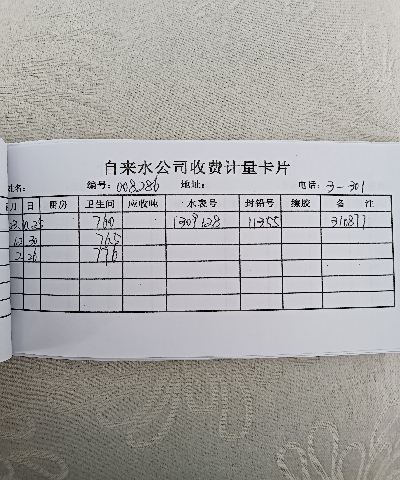 自来水公司收费计量卡片
姓名: 编号: 008286 地址: 电话: 3-301
月 日 厨房 卫生间 应收吨 水表号 封铅号 橡胶 备 注
25 760 1309128 11355 310877
30 765
2 26 776